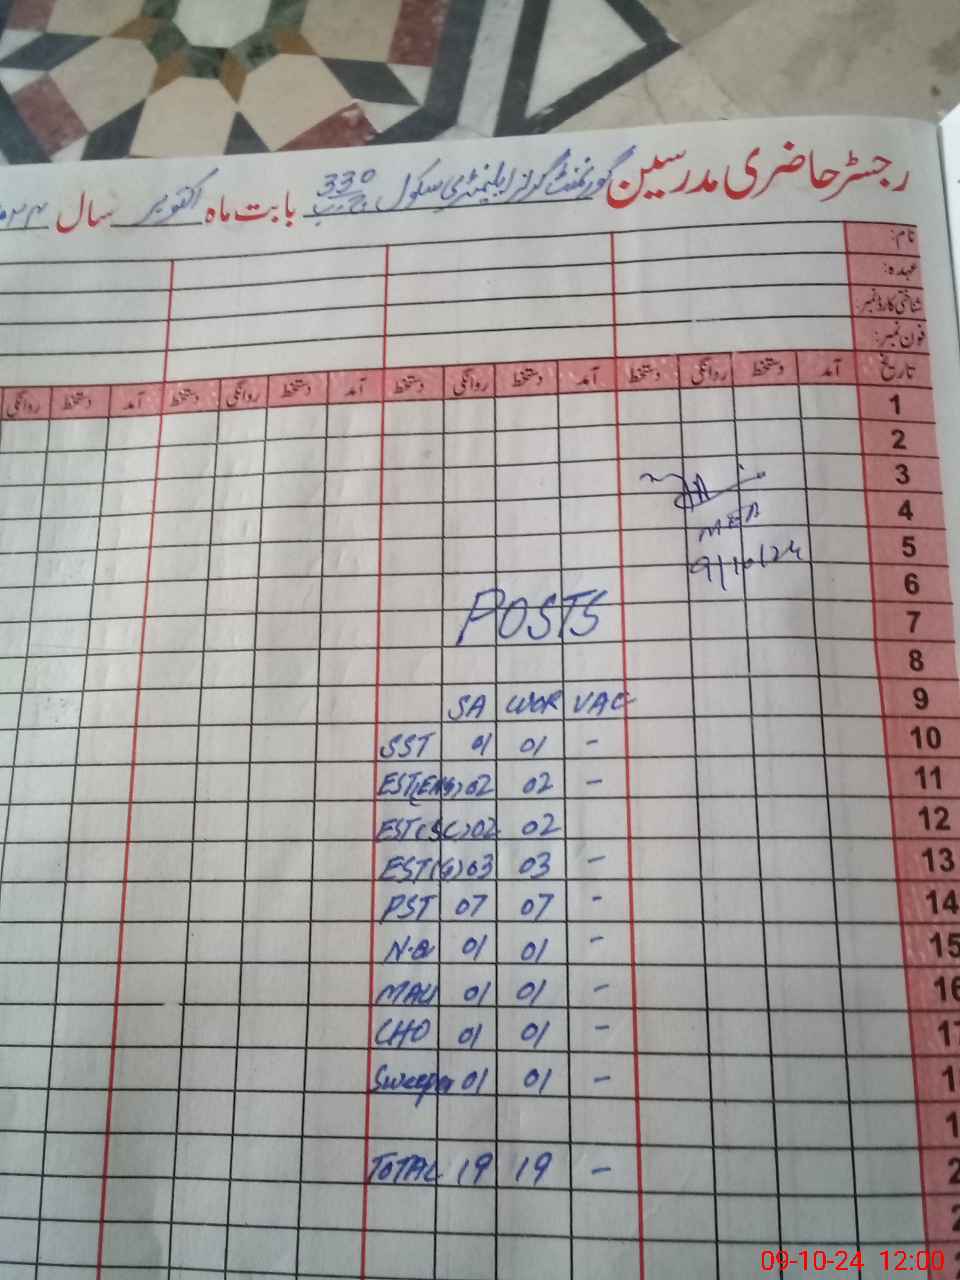 رجسٹر حاضری مدرسین گورنمنٹ گرلز ایلیمنٹری سکول 330 بابت ماہ اکتوبر سال
نام:
عہدہ:
شناختی کارڈ نمبر:
فون نمبر:
تاریخ آمد دستخط روانگی دستخط آمد دستخط روانگی دستخط آمد دستخط روانگی دستخط آمد دستخط روانگی
1
2
3
4
MEA
5
9/10/24
6
POSTS
7
8
SA WOR VAC 9
SST 01 01 - 10
EST(ENG) 02 02 - 11
EST(SC) 02 02 12
EST(G) 03 03 - 13
PST 07 07 - 14
N.Q 01 01 - 15
MALI 01 01 - 16
CHO 01 01 - 17
Sweeper 01 01 -
TOTAL 19 19 -
09-10-24 12:00